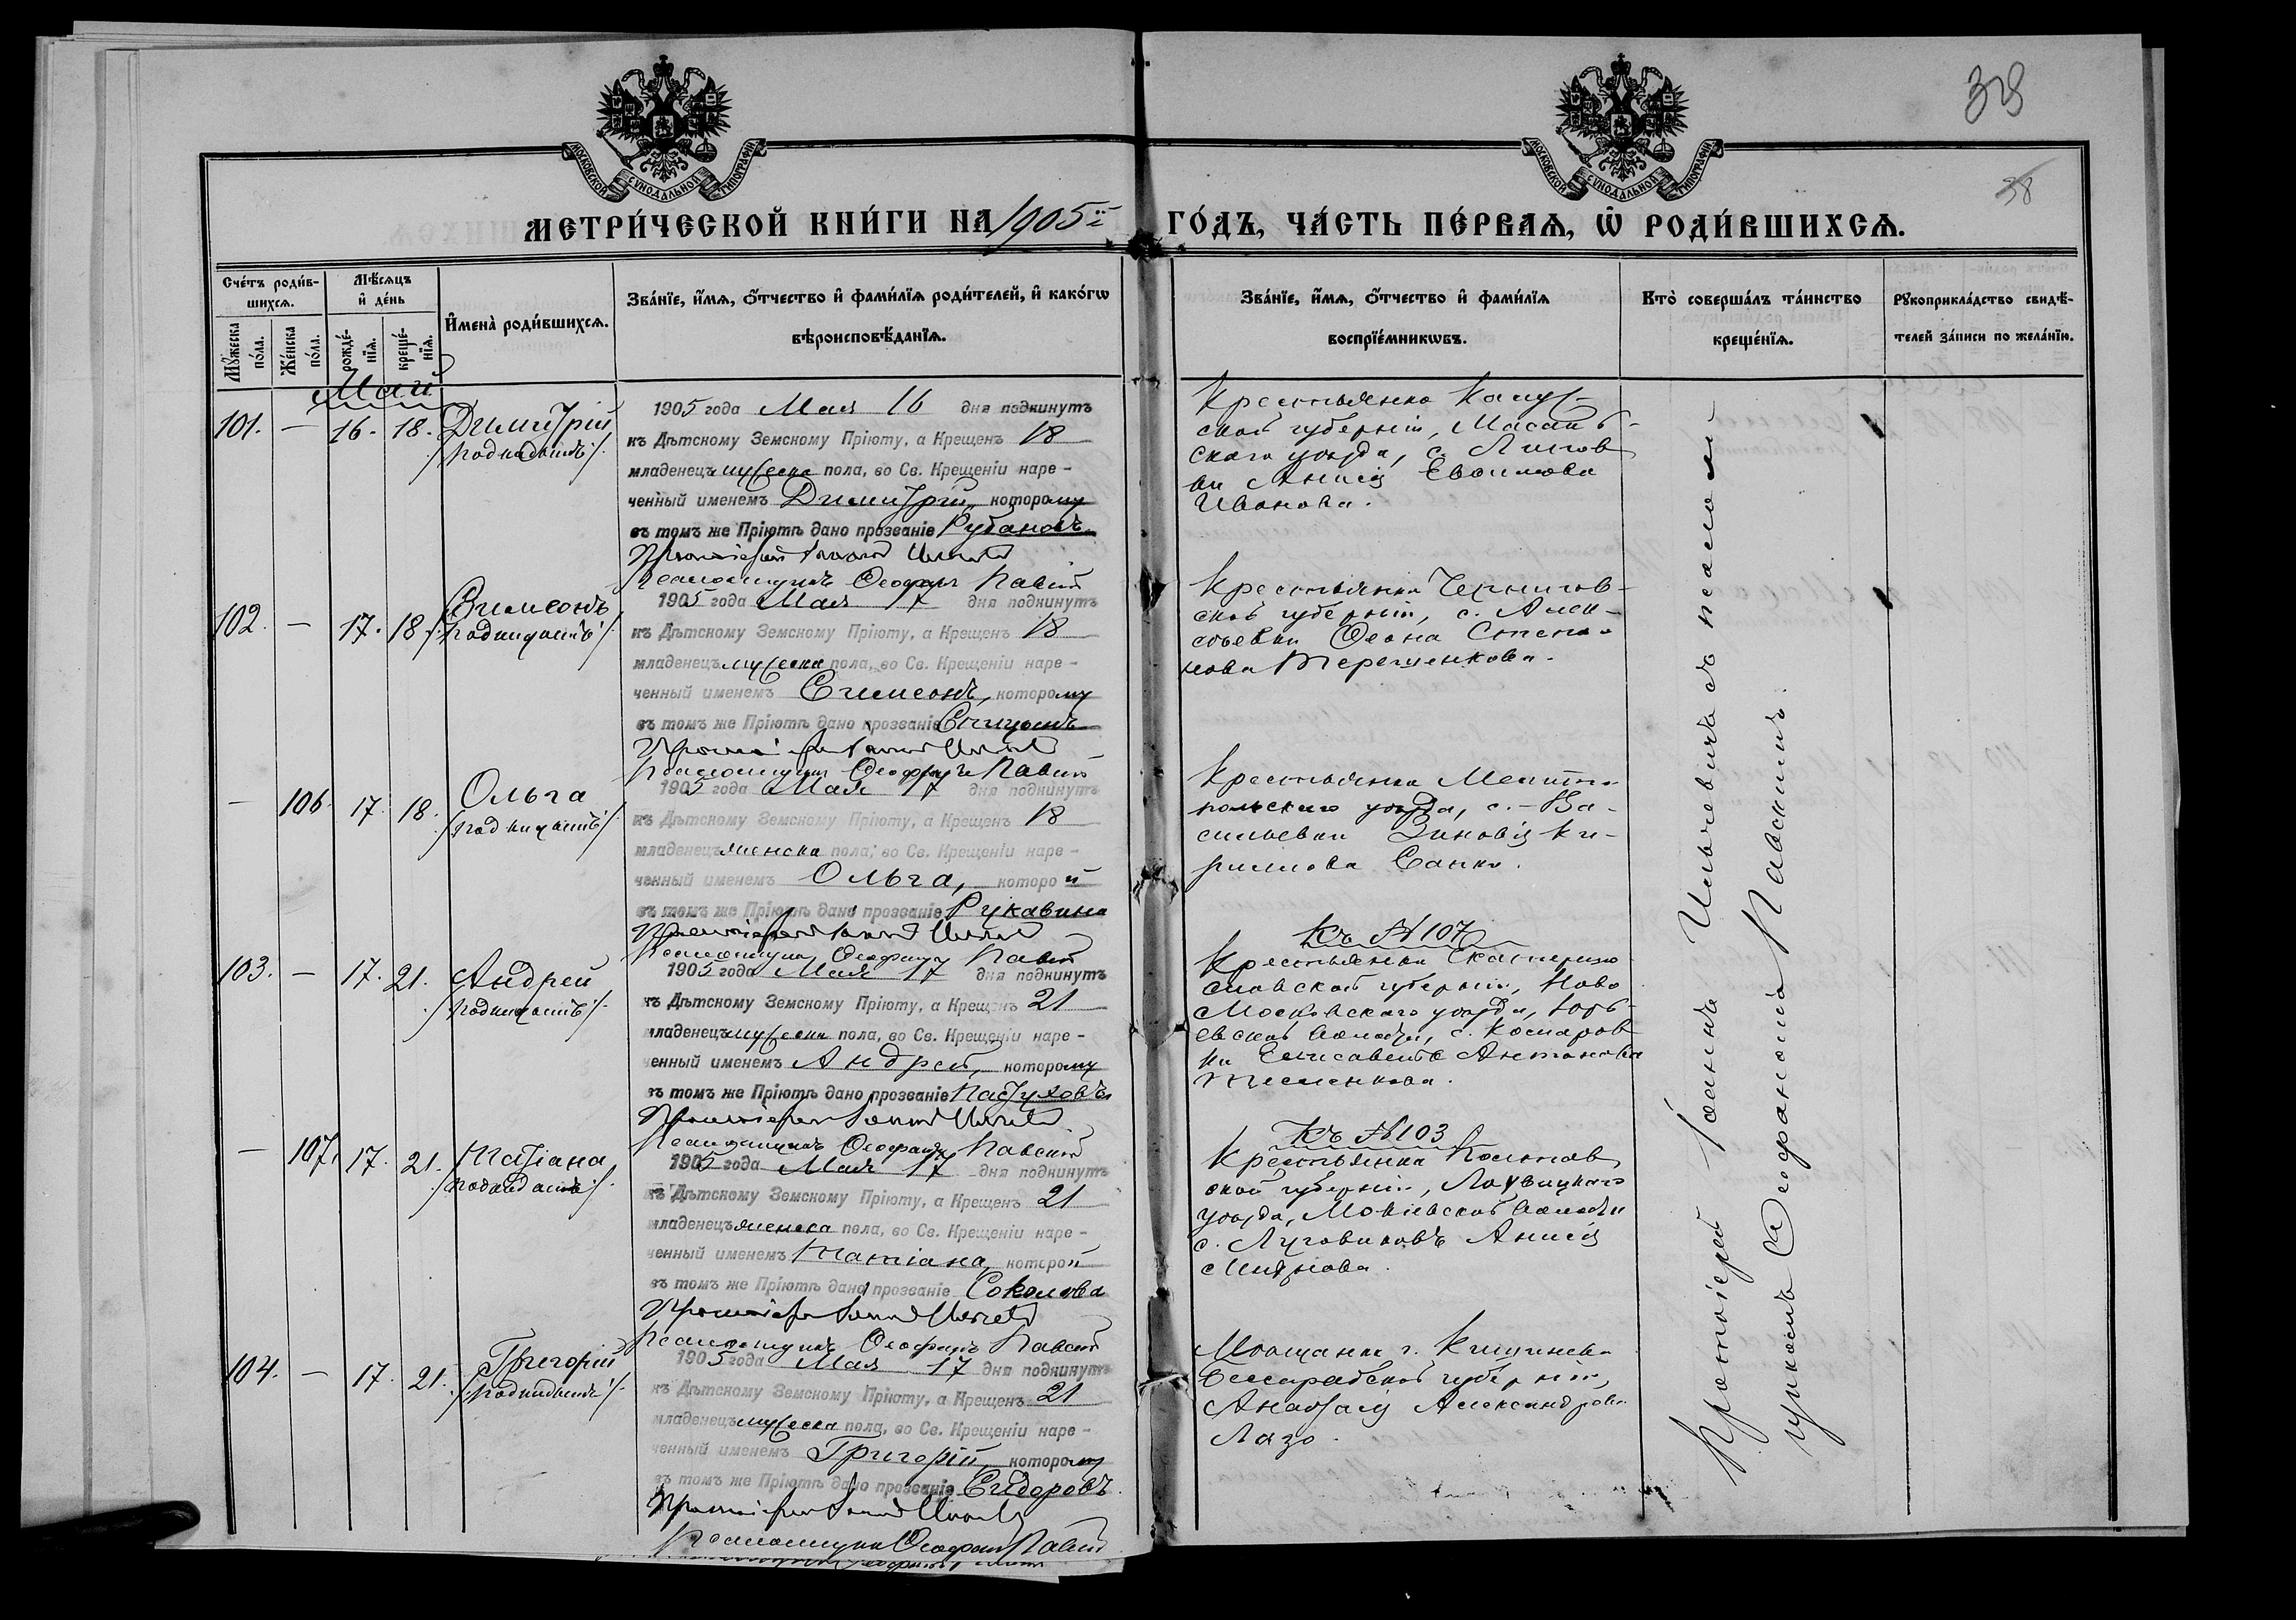 39
38
МОСКОВСКОЙ СѴНОДАЛЬНОЙ ТИПОГРАФІИ
МОСКОВСКОЙ СѴНОДАЛЬНОЙ ТИПОГРАФІИ
МЕТРИ́ЧЕСКОЙ КНИ́ГИ НА 1905й ГО́ДЪ, ЧА́СТЬ ПЕ́РВАѦ, Ѡ҆ РОДИ́ВШИХСѦ.
Сче́тъ роди́в-
шихсѧ.
Мꙋ́жеска по́ла.
Же́нска по́ла.
Мѣ́сѧцъ
и҆ де́нь
рожде́-
нїѧ.
креще́-
нїѧ.
И҆мена̀ роди́вшихсѧ.
Зва́нїе, и҆́мѧ, ѻ҆́тчество и҆ фами́лїѧ роди́телей, и҆ како́гѡ
вѣроисповѣ́данїѧ.
Зва́нїе, и҆́мѧ, ѻ҆́тчество и҆ фами́лїѧ
воспрїе́мникѡвъ.
Кто̀ соверша́лъ та́инство
креще́нїѧ.
Рꙋкоприкла́дство свидѣ́-
телей за́писи по жела́нїю.
Май
101. — 16. 18. Димитрій
/подкидышъ/.
1905 года Мая 16 дня подкинутъ
къ Дѣтскому Земскому Пріюту, а Крещенъ 18
младенецъ мужеска пола, во Св. Крещеніи наре-
ченный именемъ Димитрій, которому
въ томъ же Пріютѣ дано прозваніе Рубановъ
Протоіерей Іоаннъ
Псаломщикъ Ѳеофанъ Павскій
Крестьянка Калуж-
ской губерніи,
скаго уѣзда, с. Липов
ки Анисія Евфимова
Иванова.
102. — 17. 18. Симеонъ
/подкидышъ/.
1905 года Мая 17 дня подкинутъ
къ Дѣтскому Земскому Пріюту, а Крещенъ 18
младенецъ мужеска пола, во Св. Крещеніи наре-
ченный именемъ Симеонъ, которому
въ томъ же Пріютѣ дано прозваніе
Протоіерей Іоаннъ
Псаломщикъ Ѳеофанъ Павскій
Крестьянка Чернигов-
ской губерніи, с. Алек-
сѣевки Ѳеона Степа-
нова Терещенкова.
— 106. 17. 18. Ольга
/подкидышъ/.
1905 года Мая 17 дня подкинутъ
къ Дѣтскому Земскому Пріюту, а Крещенъ 18
младенецъ женска пола, во Св. Крещеніи наре-
ченный именемъ Ольга, которой
въ томъ же Пріютѣ дано прозваніе Рукавина
Протоіерей Іоаннъ
Псаломщикъ Ѳеофанъ Павскій
Крестьянка Мелито-
польскаго уѣзда, с. Ва-
сильевки Зиновія Ки-
рилова Санко.
103. — 17. 21. Андрей
/подкидышъ/.
1905 года Мая 17 дня подкинутъ
къ Дѣтскому Земскому Пріюту, а Крещенъ 21
младенецъ мужеска пола, во Св. Крещеніи наре-
ченный именемъ Андрей, которому
въ томъ же Пріютѣ дано прозваніе Пастуховъ
Протоіерей Іоаннъ
Псаломщикъ Ѳеофанъ Павскій
Къ № 107
Крестьянка Екатерино
славской губерніи, Ново
Московскаго уѣзда, Юрь-
евской волости, с. Комаров
ки Елисавета Антонова
Тесленкова.
— 107. 17. 21. Татіана
/подкидышъ/.
1905 года Мая 17 дня подкинутъ
къ Дѣтскому Земскому Пріюту, а Крещенъ 21
младенецъ женска пола, во Св. Крещеніи наре-
ченный именемъ Татіана, которой
въ томъ же Пріютѣ дано прозваніе Соколова
Протоіерей Іоаннъ
Псаломщикъ Ѳеофанъ Павскій
Къ № 103
Крестьянка Полтав
ской губерніи, Лохвицкаго
уѣзда, волости
с. Луговиковъ Анисія
104. — 17. 21. Григорій
/подкидышъ/.
1905 года Мая 17 дня подкинутъ
къ Дѣтскому Земскому Пріюту, а Крещенъ 21
младенецъ мужеска пола, во Св. Крещеніи наре-
ченный именемъ Григорій, которому
въ томъ же Пріютѣ дано прозваніе Сидоровъ
Протоіерей Іоаннъ
Псаломщикъ Ѳеофанъ Павскій
Мѣщанка г. Кишинева
Бессарабской губерніи,
Анастасія Александрова
Лазо.
Протоіерей Іоаннъ Ильчевичъ съ псалом-
щикомъ Ѳеофаномъ Павскимъ.